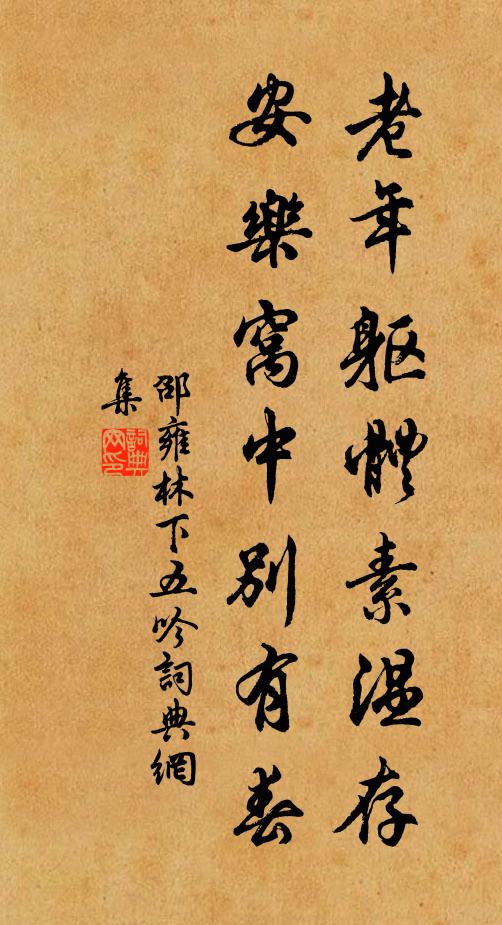 老年躯體素温存
安樂窩中別有春
邵雍林下五吟詞典網
集
詞典網印